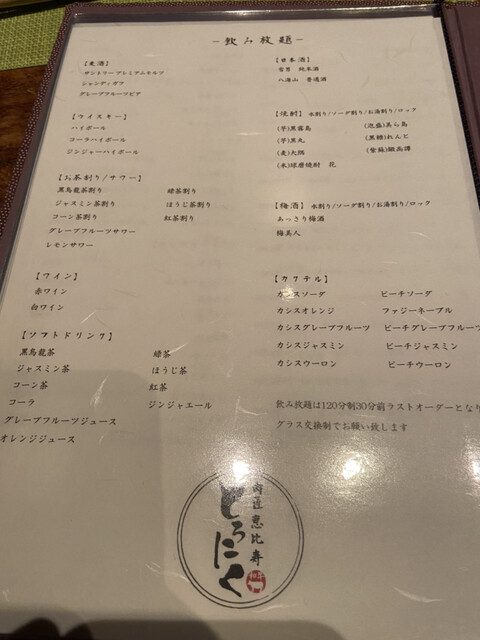 －飲み放題－
【麦酒】
サントリープレミアムモルツ
シャンディガフ
グレープフルーツビア
【ウイスキー】
ハイボール
コーラハイボール
ジンジャーハイボール
【お茶割り/サワー】
黒烏龍茶割り　緑茶割り
ジャスミン茶割り　ほうじ茶割り
コーン茶割り　紅茶割り
グレープフルーツサワー
レモンサワー
【ワイン】
赤ワイン
白ワイン
【ソフトドリンク】
黒烏龍茶　緑茶
ジャスミン茶　ほうじ茶
コーン茶　紅茶
コーラ　ジンジャエール
グレープフルーツジュース
オレンジジュース
【日本酒】
雪男　純米酒
八海山　普通酒
【焼酎】水割り/ソーダ割り/お湯割り/ロック
(芋)黒霧島　(泡盛)美ら島
(芋)黒丸　(黒糖)れんと
(麦)火隅　(紫蘇)鍛高譚
(米)球磨焼酎　花
【梅酒】水割り/ソーダ割り/お湯割り/ロック
あっさり梅酒
梅美人
【カクテル】
カシスソーダ　ピーチソーダ
カシスオレンジ　ファジーネーブル
カシスグレープフルーツ　ピーチグレープフルーツ
カシスジャスミン　ピーチジャスミン
カシスウーロン　ピーチウーロン
飲み放題は120分制30分前ラストオーダーとなり
グラス交換制でお願い致します
肉匠恵比寿
とろにく